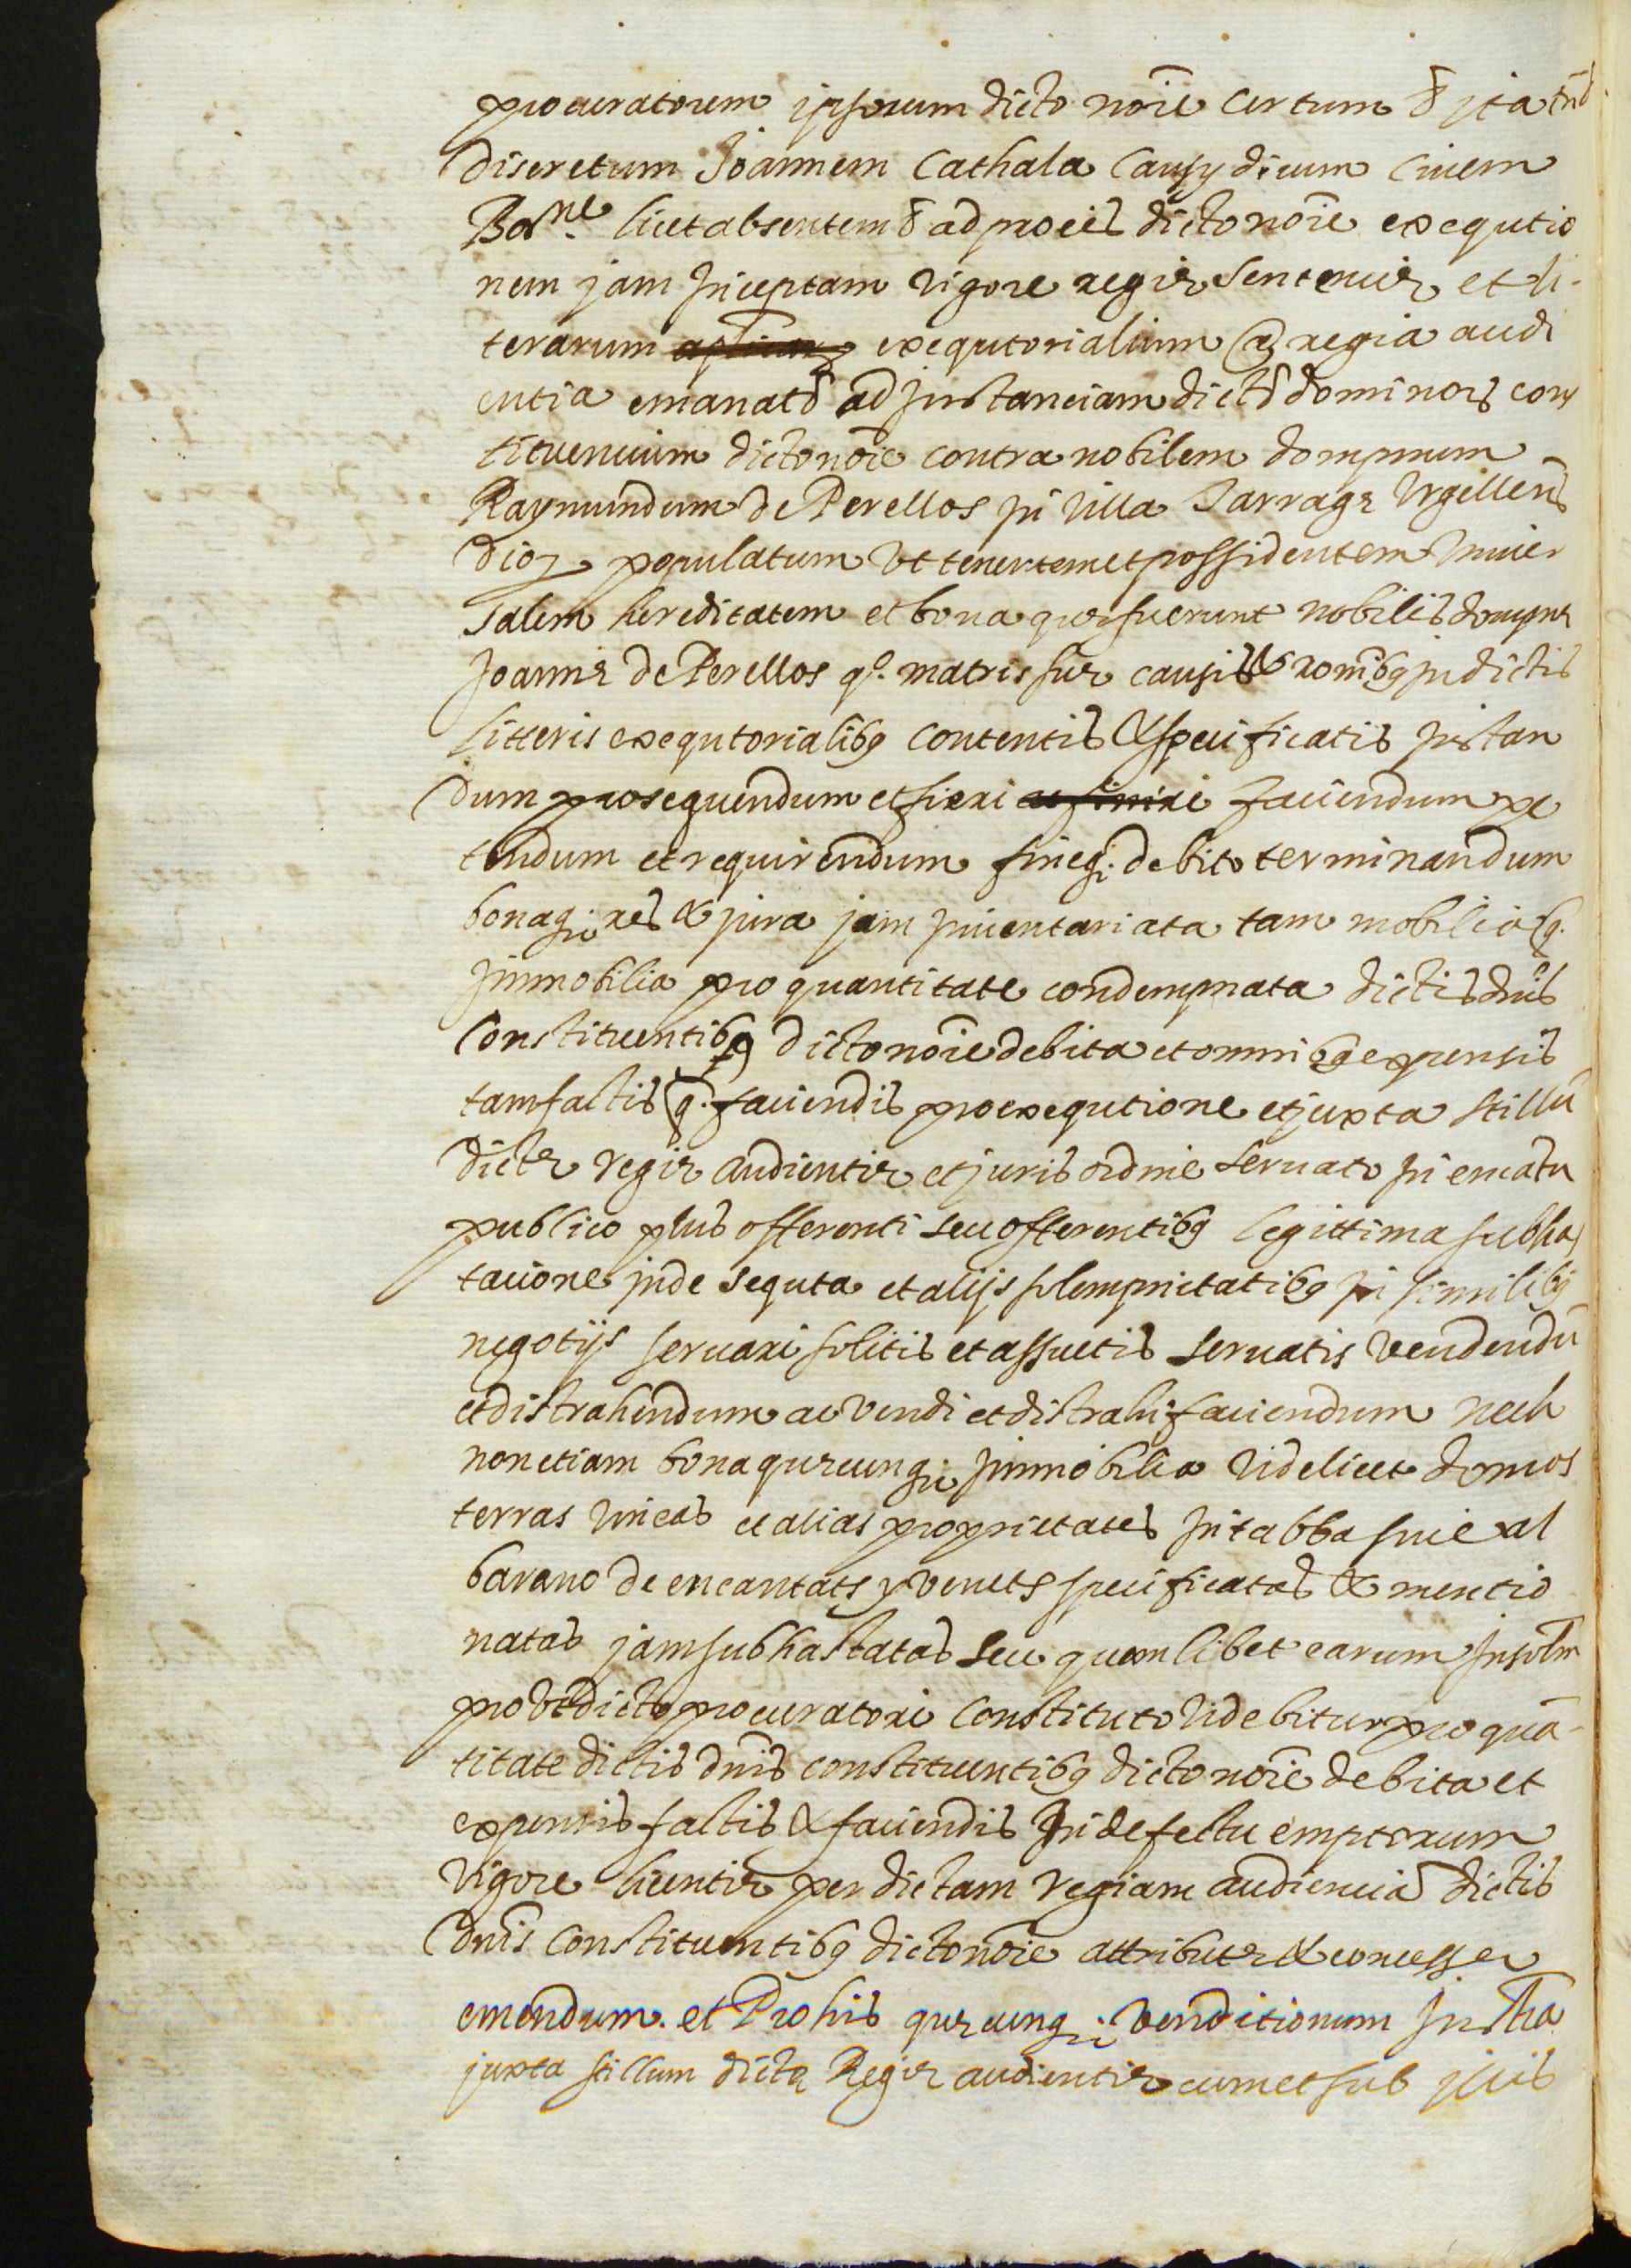 procuratorem ipsorum dicto noie certum & ita tnd
discretum Joannem Cathala causydicum civem
Barne. licet absentem & ad procis dicto noie exequtio
nem jam inceptam vigore regiæ sentenciæ et li-
terarum exequtorialium a regia audi
entia emanatd ad instanciam dictd dominors cons
tituencium dicto noie contra nobilem dompnum
Raymundum de Perellos in villa Tarragæ Urgellens
dioz populatum ut tenentem et possidentem univer
salem hereditatem et bona quæ fuerunt nobilis dompnæ
Joannæ de Perellos qº. matris suæ causis & ronibq in dictis
litteris exequtorialibq contentis & specificatis instan
dum prosequendum et fieri et finire faciendum pe
tendum et requirendum fineqi debito terminandum
bonaqi res & jura jam inventariata tam mobilia q.
immobilia pro quantitate condempnata dictis dnis
constituentibq dicto noie debita et omnibq expensis
tam factis q. faciendis pro exequtione et juxta stillū
dictæ regiæ audientiæ et juris ordine servato in encatu
publico plus offerenti seu offerentibq legittima subhas
tacione inde sequta et alijs solempnitatibq in similibq
negotijs servari solitis et assuetis servatis vendendū
et distrahendum ac vendi et distrahi faciendum nech
non etiam bona quæcunqi immobilia videlicet domos
terras vineas et alias proprietates in tabba sive al
barano de encantats y venuts specificatas & mentio
natas jam subhastatas seu quamlibet earum insolm
pro ut dicto procuratori constituto videbitur pro quā-
titate dictis dnis constituentibq dicto noie debita et
expensis factis & faciendis in defectu emptorum
vigore licentiæ per dictam regiam audienciā dictis
dnis constituentibq dicto noie attributæ & concessæ
emendum. et Pro his quæcunqi venditionum instra
juxta stillum dictæ Regiæ audientiæ cum et sub illis